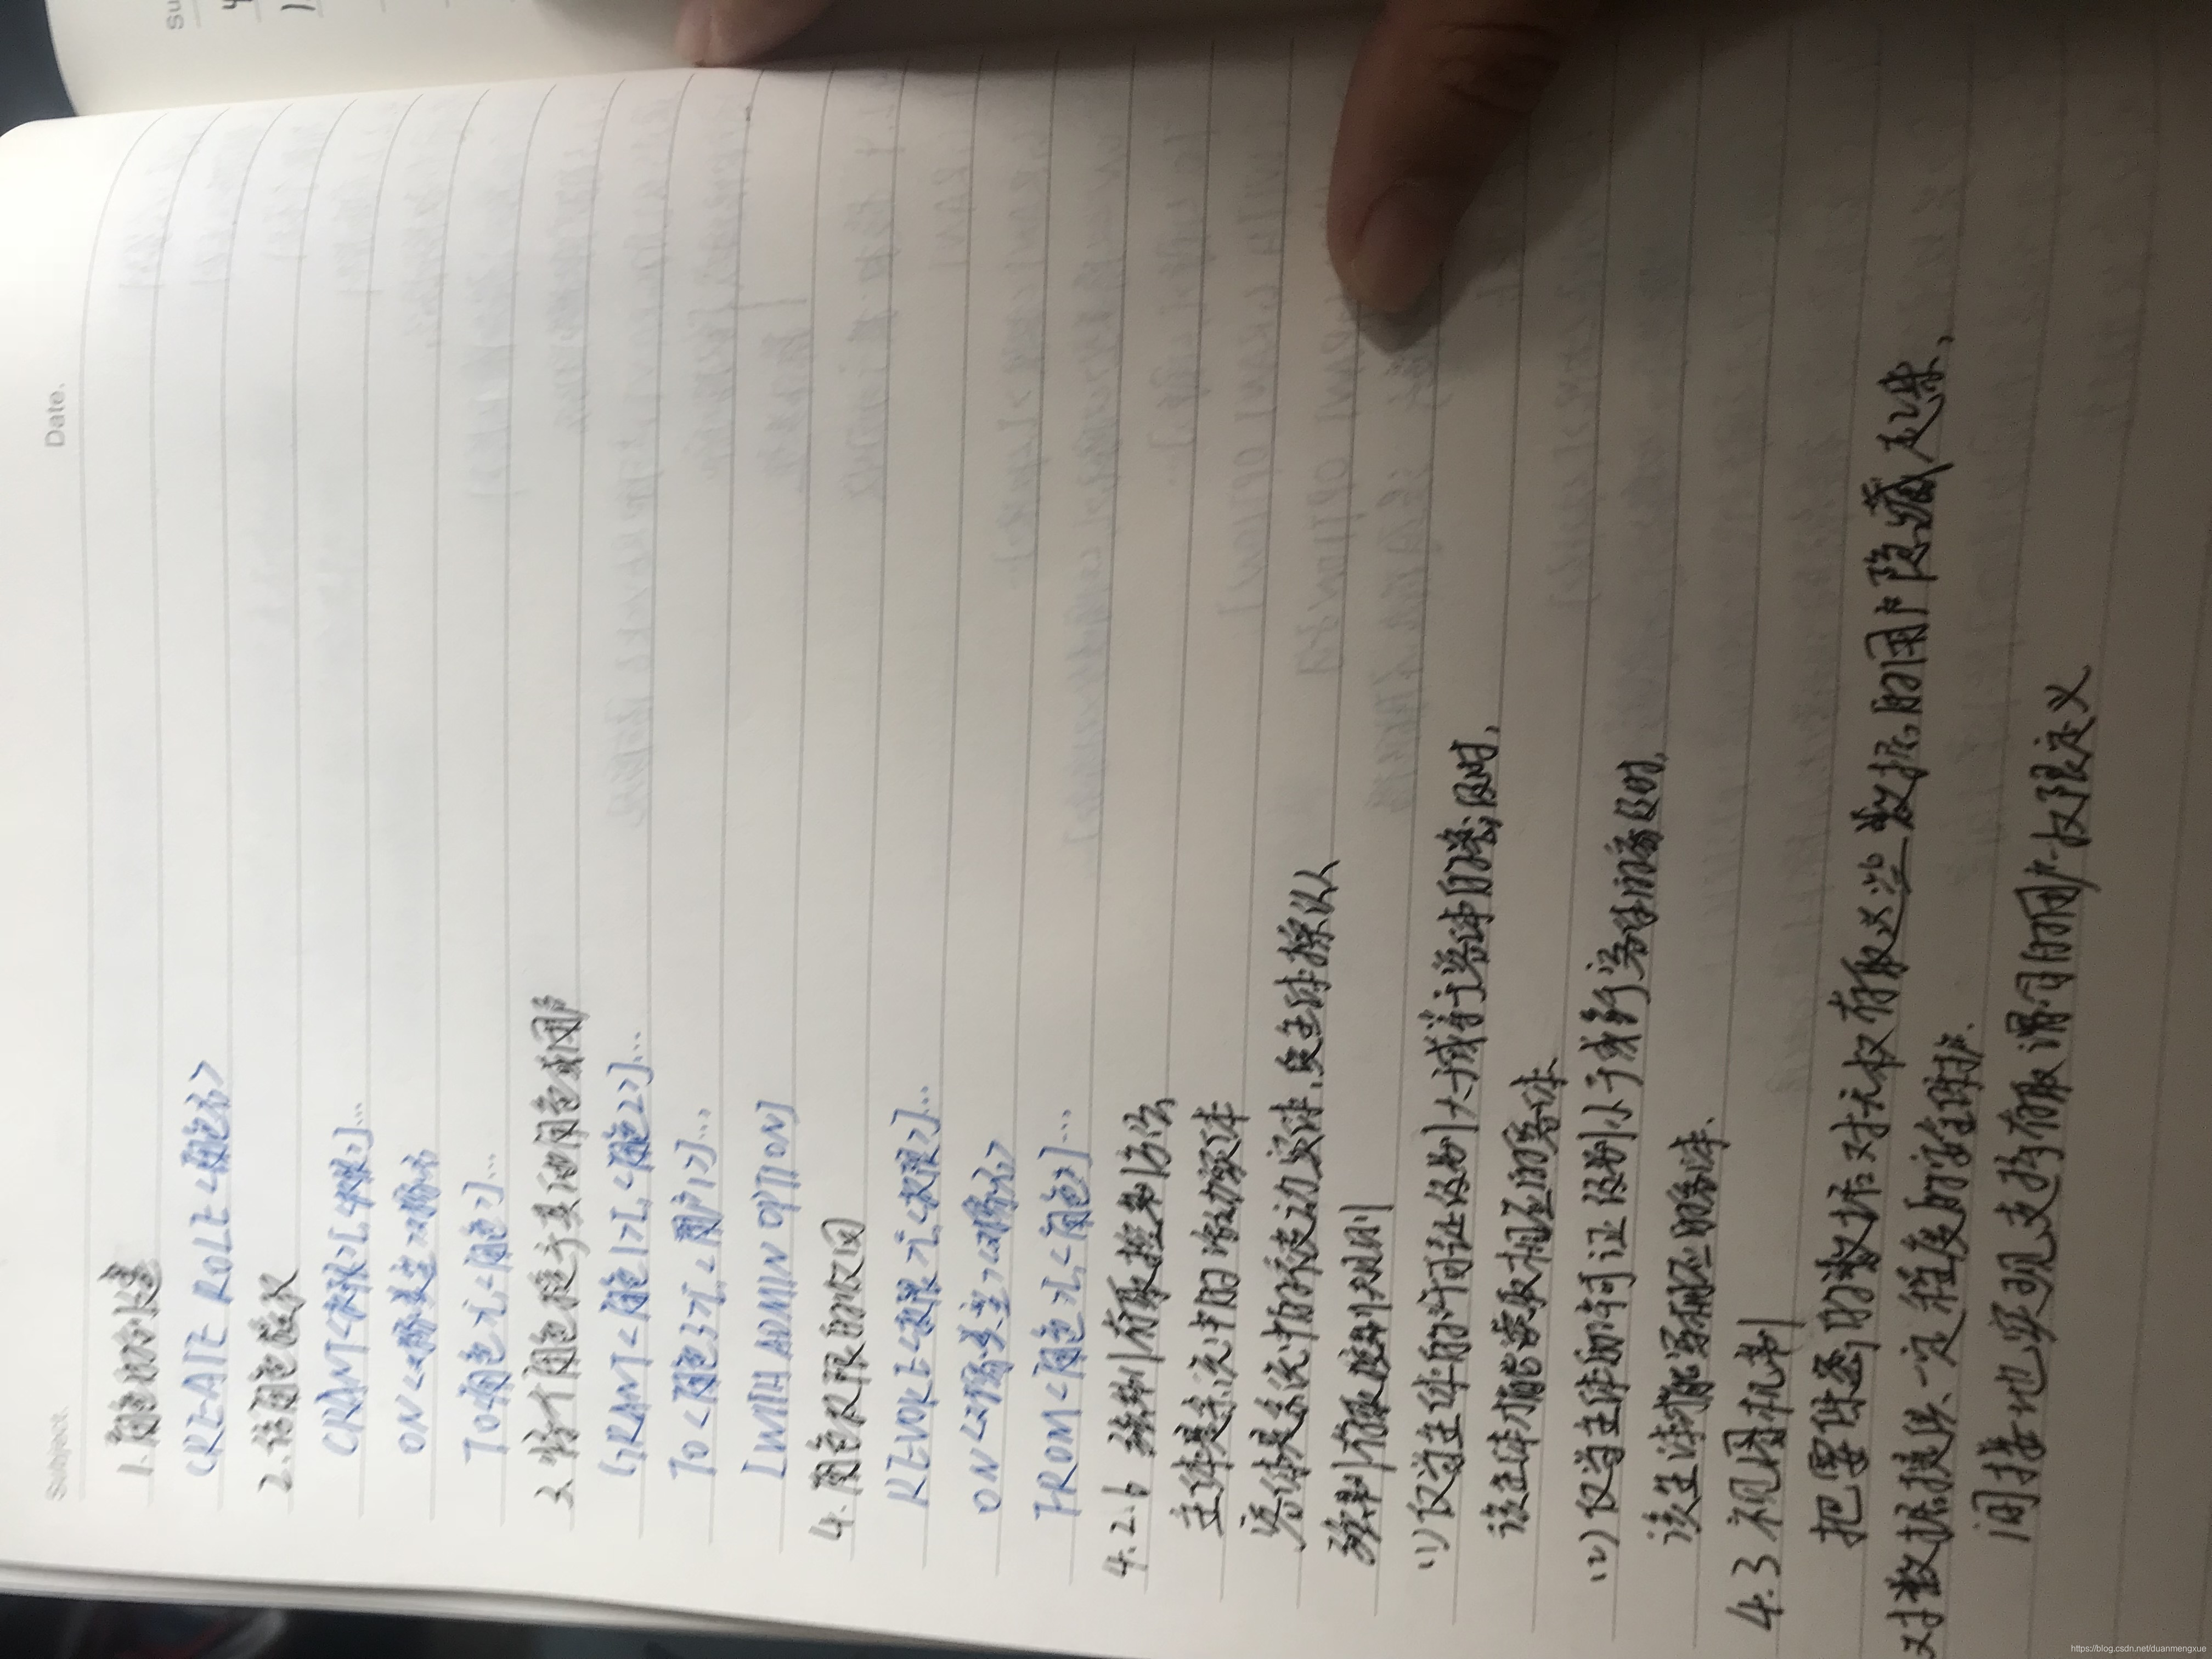 Subject.
Date.
1.角色的创建
CREATE ROLE <角色名>
2.给角色授权
GRANT<权限>[,<权限>]...
ON <对象类型>对象名
TO<角色>[,<角色>]...
3.将一个角色授予其他的角色或用户
GRANT<角色1>[,<角色2>]...
TO <角色3>[,<用户1>]...
[WITH ADMIN OPTION]
4.角色权限的收回
REVOKE<权限>[,<权限>]...
ON <对象类型><对象名>
FROM<角色>[,<角色>]...
4.2.6 强制存取控制方法
主体是系统中的活动实体
客体是系统中的被动实体,受主体操纵
强制存取控制规则
(1)仅当主体的许可证级别大于或等于客体的密级时,
该主体才能读取相应的客体
(2)仅当主体的许可证级别小于或等于客体的密级时,
该主体才能写相应的客体.
4.3 视图机制
把要保密的数据对无权存取这些数据的用户隐藏起来,
对数据提供一定程度的安全保护.
间接地实现支持存取谓词的用户权限定义
https://blog.csdn.net/duanmengxue